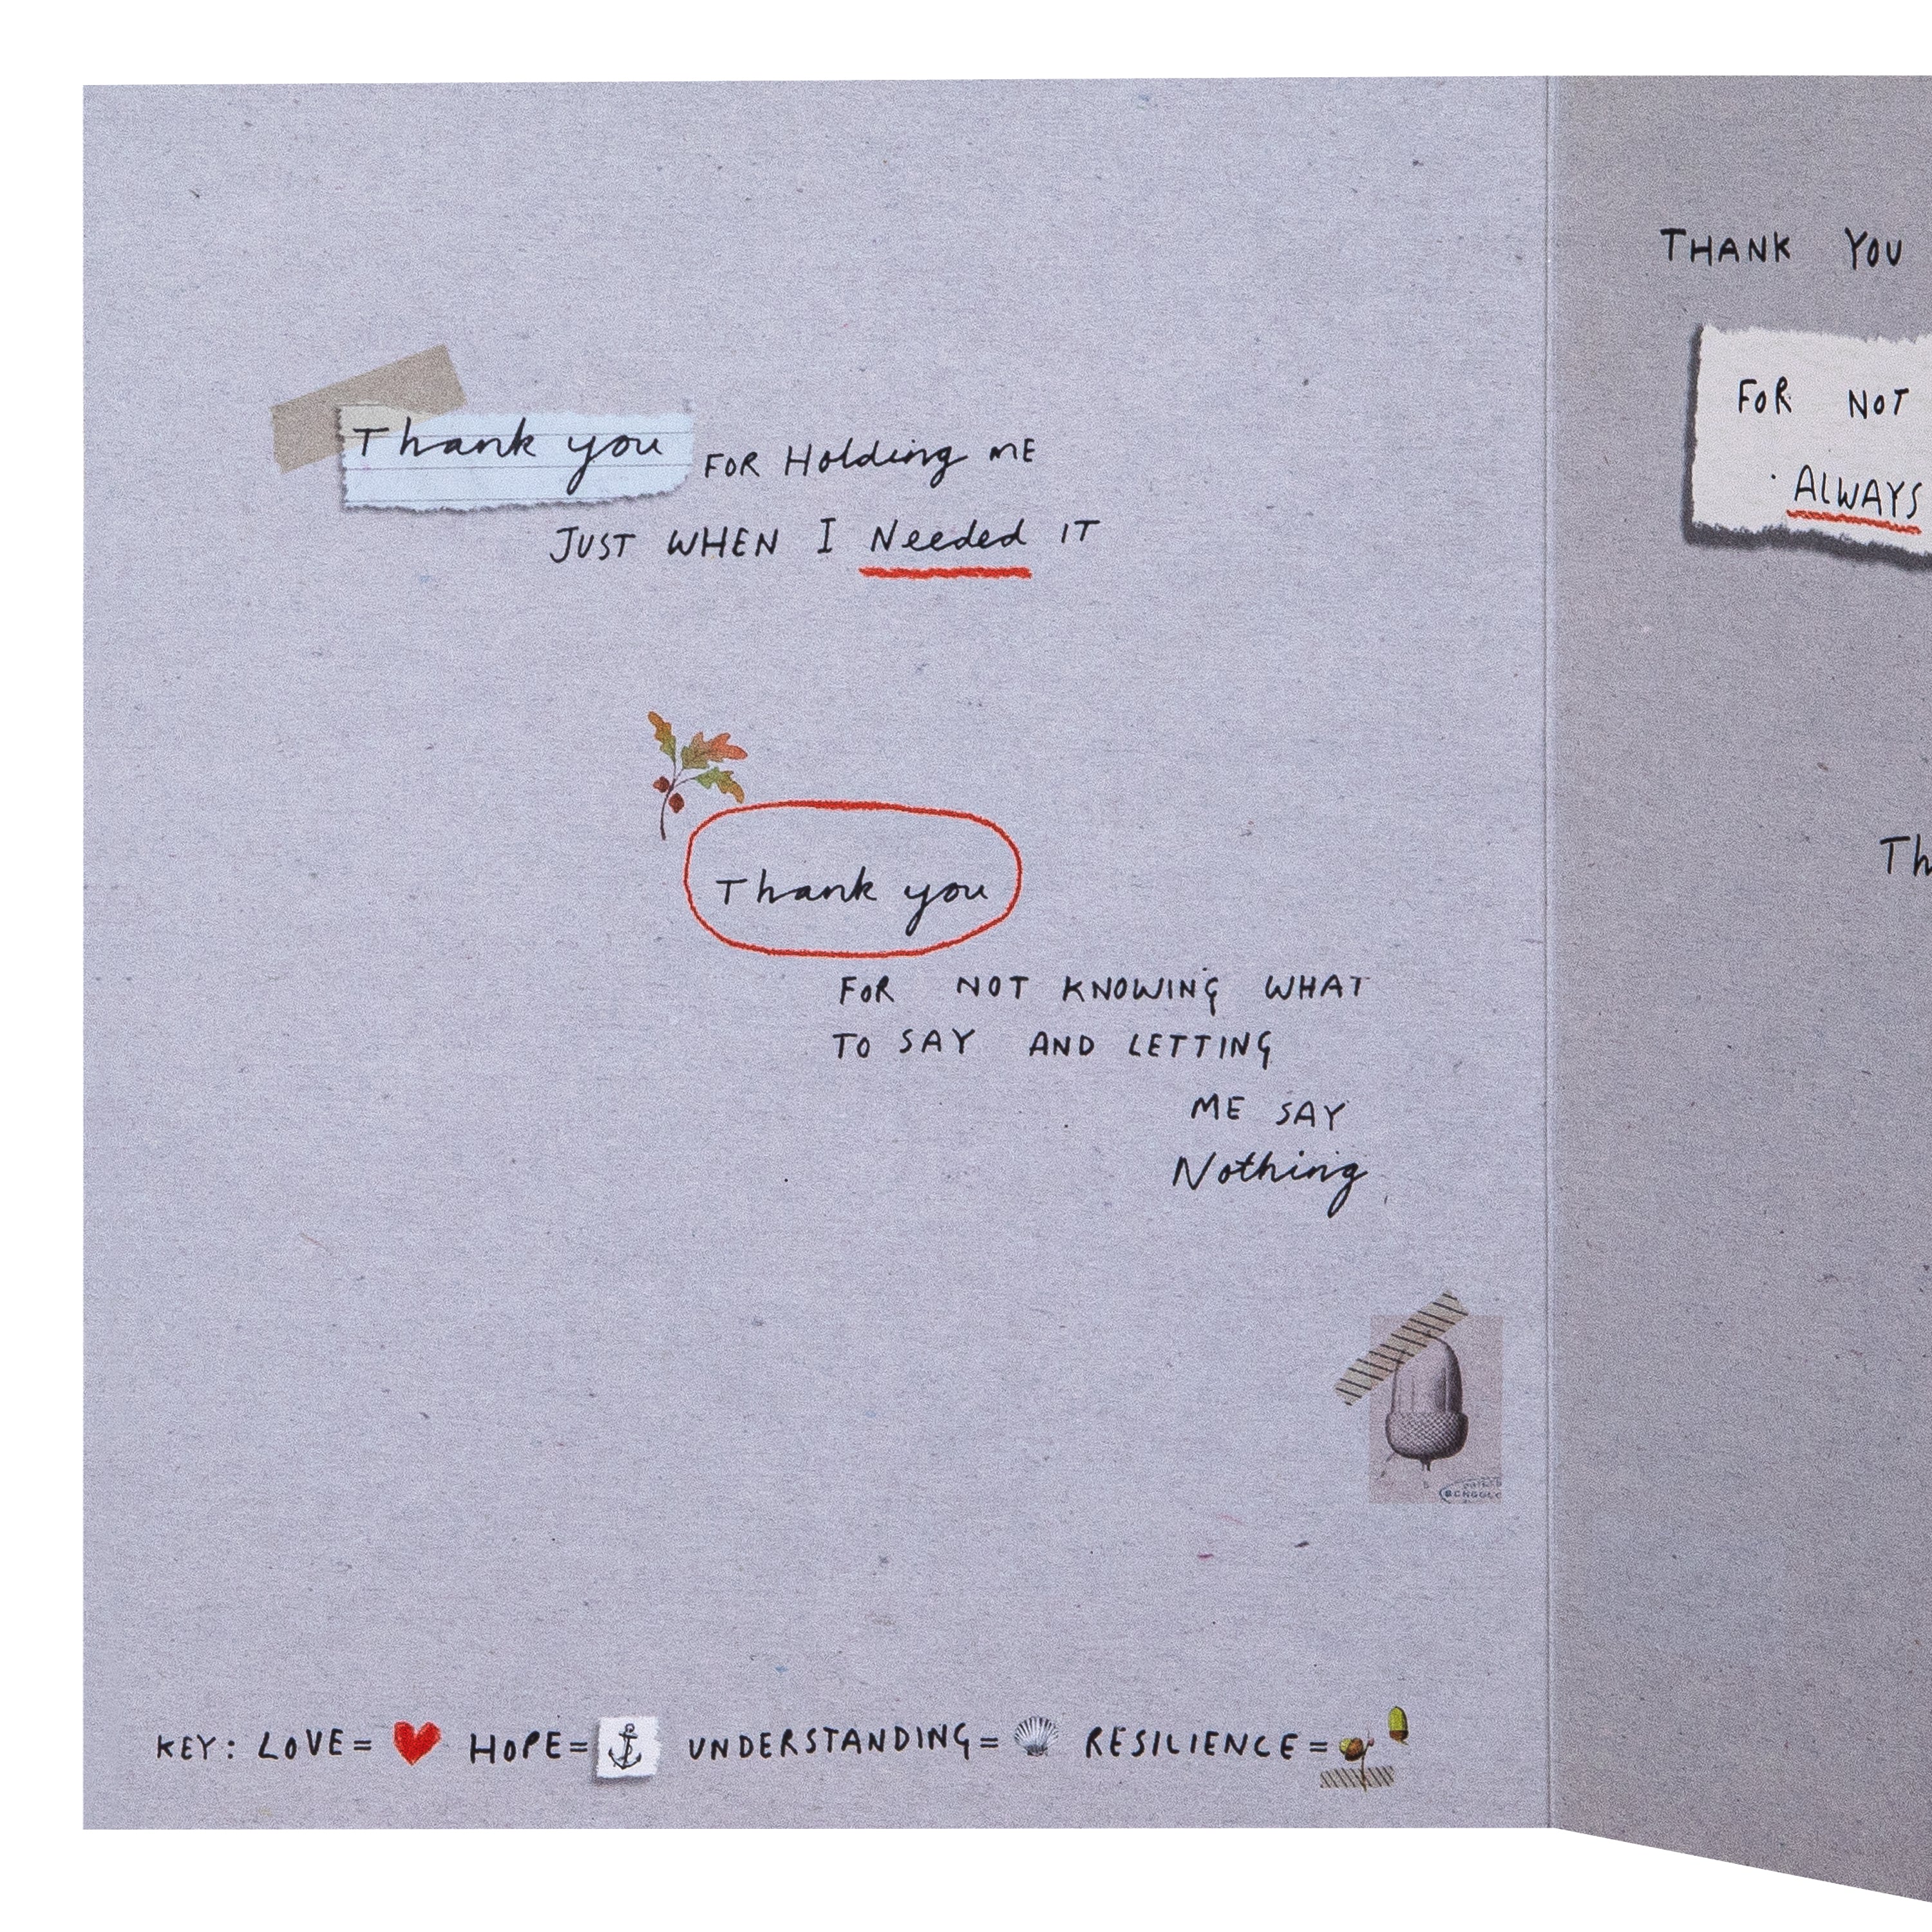 Thank you FOR Holding ME
JUST WHEN I Needed IT
Thank you
FOR NOT KNOWING WHAT
TO SAY AND LETTING
ME SAY
Nothing
KEY: LOVE= HOPE= UNDERSTANDING= RESILIENCE=
THANK YOU
FOR NOT
ALWAYS